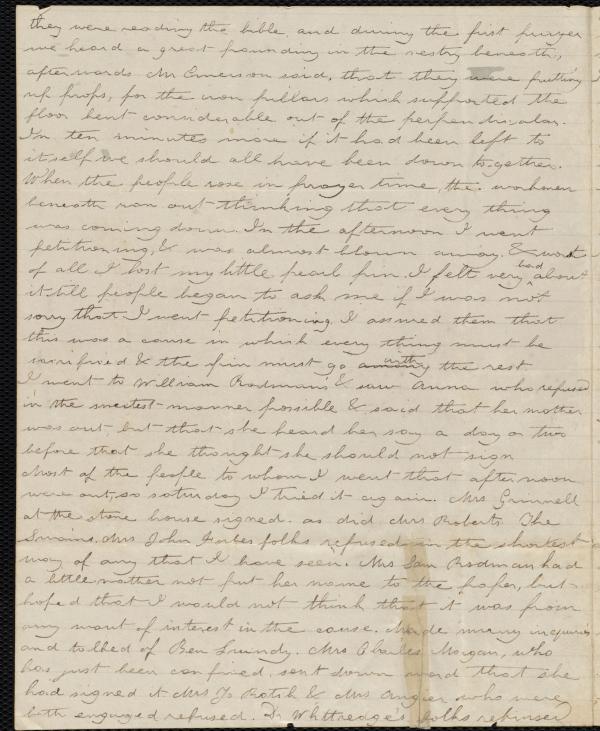 they were reading the bible, and during the first prayer
we heard a great pounding in the vestry beneath,
afterwards Mr Emerson said, that they were putting
up props, for the iron pillars which supported the
floor bent considerable out of the perpendicular.
In ten minutes more if it had been left to
itself we should all have been down together.
When the people rose in prayer time, the workmen
beneath ran out thinking that every thing
was coming down. In the afternoon I went
petitioning, & was almost blown away. & worst
of all I lost my little pearl pin. I felt very bad about
it till people began to ask me if I was not
sorry that I went petitioning, I assured them that
this was a cause in which every thing must be
sacrificed & the pin must go among with the rest.
I went to William Rodman's & saw Anna who refused
in the sweetest manner possible & said that her mother
was out but that she heard her say a day or two
before that she thought she should not sign
Most of the people to whom I went that afternoon
were out, so saturday I tried it again. Mrs Grinnell
at the stone house signed. as did Mrs Roberts. The
Swains, Mrs John Forbes folks refused in the shortest
way of any that I have seen. Mrs Sam Rodman had
a little rather not put her name to the paper, but
hoped that I would not think that it was from
any want of interest in the cause. Made many inquiries
and talked of Ben Lundy. Mrs Charles Morgan, who
has just been confined, sent down word that she
had signed it Mrs Jo Rotch & Mrs Angier who were
both engaged refused. Dr Whittredge's folks refused